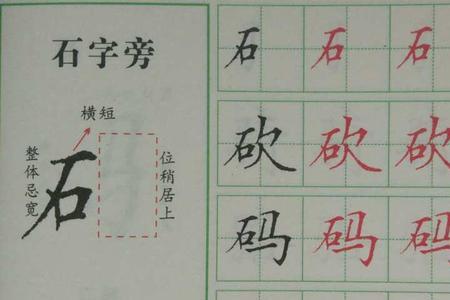 石字旁
横短
整体忌宽
石
位稍居上
石 石 石
砍 砍 砍
码 码 码